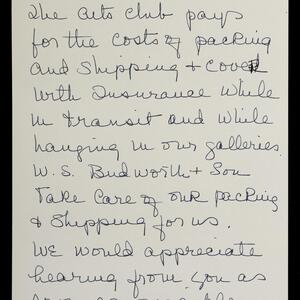 The arts club pays
for the costs of packing
and Shipping + cover
with Insurance while
in transit and while
hanging in our galleries.
W. S. Budworth + Son
Take Care of our packing
& Shipping for us.
We would appreciate
hearing from you as